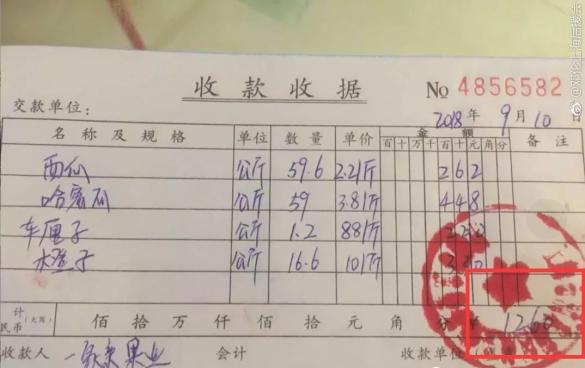 收款收据 No 4856582
交款单位: 2018年9月10日
名称及规格 单位 数量 单价 金额 备注
百十万千百十元角分
西瓜 公斤 59.6 2.2/斤 262
哈蜜瓜 公斤 59 3.8/斤 448
车厘子 公斤 1.2 88/斤
水橙子 公斤 16.6 10/斤
计 民币(大写) 佰拾万仟佰拾元角分¥ 1260
收款人 果业 会计 收款单位